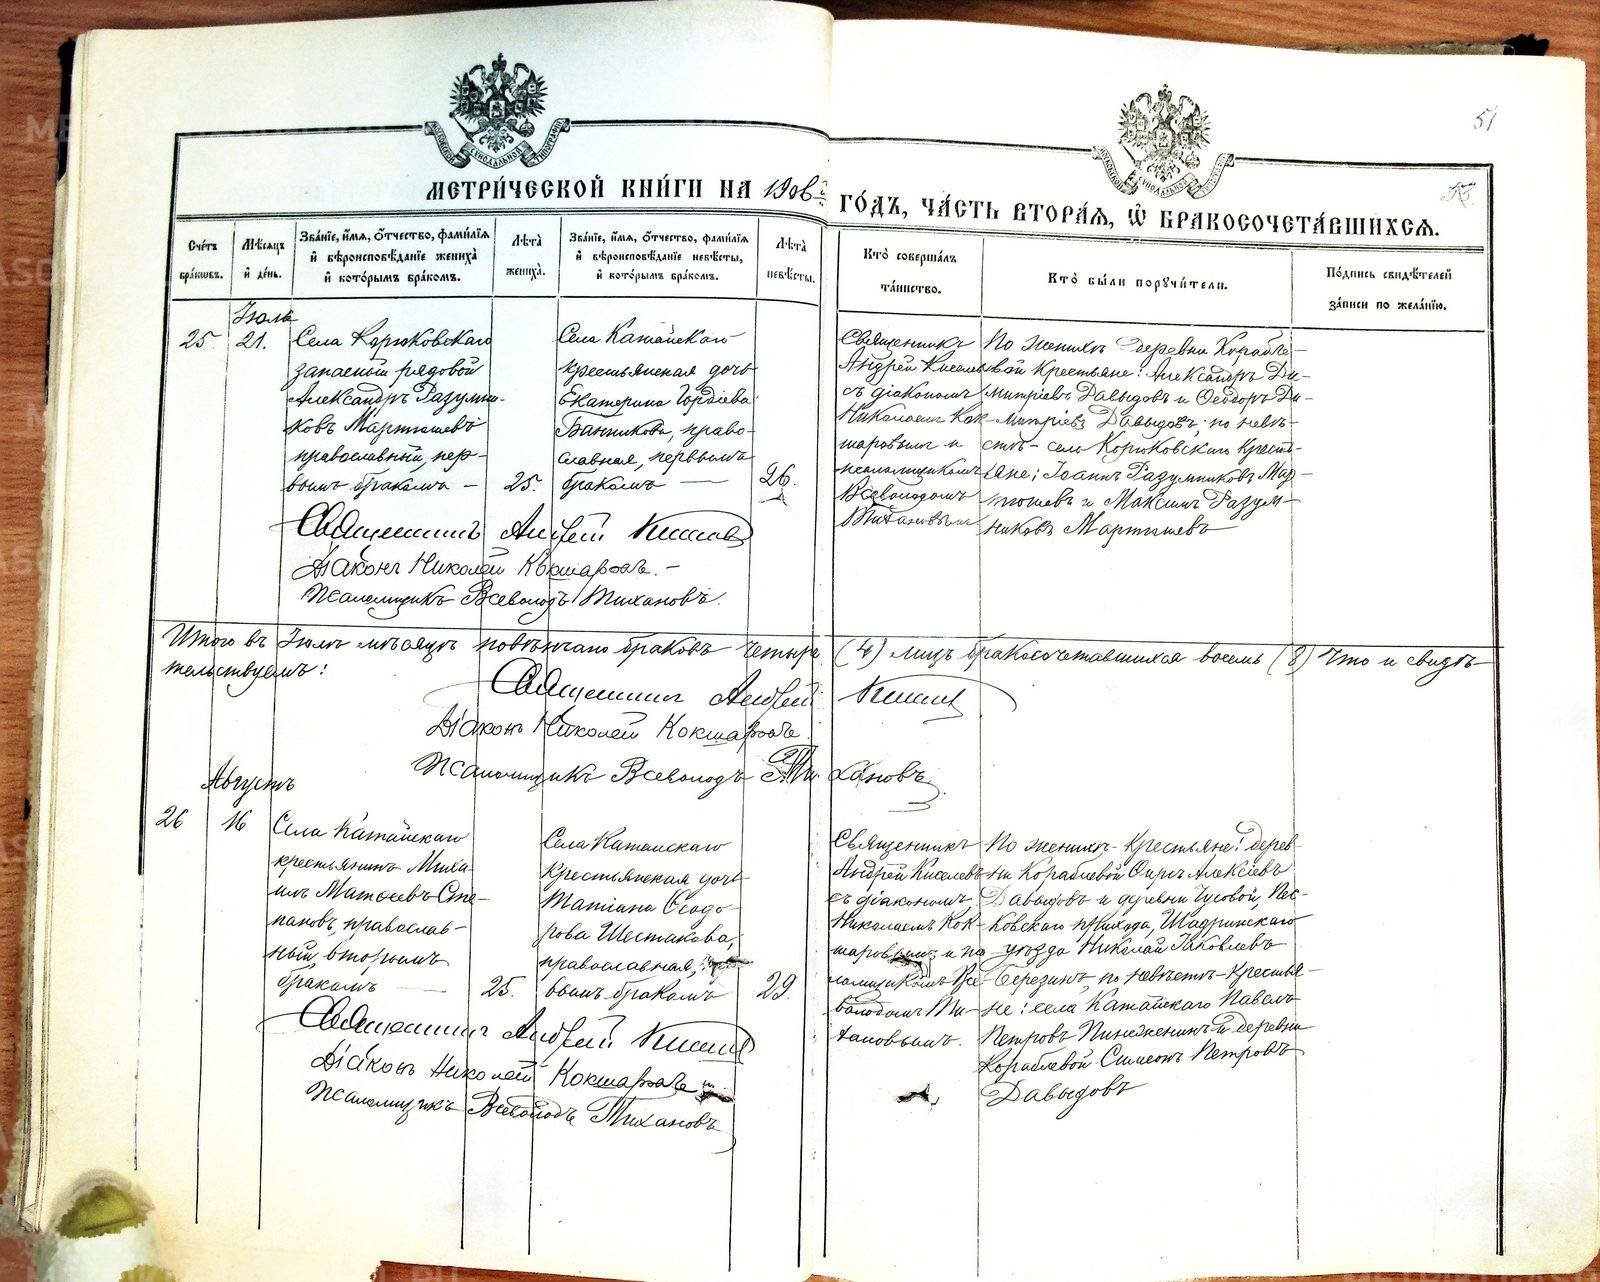 51
МЕТРИ́ЧЕСКОЙ КНИ́ГИ НА 1906й ГО́ДЪ, ЧА́СТЬ ВТОРА́Я, Ѡ БРАКОСОЧЕТА́ВШИХСЯ.
Сче́тъ бра́ковъ.
Мѣ́сяцъ и де́нь.
Зва́нїе, и́мя, о́тчество, фами́лїя и вѣроисповѣ́данїе жениха̀ и кото́рымъ бра́комъ.
Лѣ́та жениха̀.
Зва́нїе, и́мя, о́тчество, фами́лїя и вѣроисповѣ́данїе невѣ́сты, и кото́рымъ бра́комъ.
Лѣ́та невѣ́сты.
Кто̀ соверша́лъ та́инство.
Кто̀ бы́ли поручи́тели.
По́дпись свидѣ́телей за́писи по жела́нїю.
Іюль
25. 21.
Села Корюковскаго
запасный рядовой
Александръ Разумни-
ковъ Мартюшевъ
православный, пер-
вымъ бракомъ – 25.
Села Катайскаго
крестьянская дочь
Екатерина Гордіева
Банникова, право-
славная, первымъ
бракомъ — 26.
Священникъ
Андрей Киселевъ
съ діакономъ
Николаемъ Кок-
шаровымъ и
псаломщикомъ
Всеволодомъ
Тихановымъ
По женихѣ деревни Корабле-
вой крестьяне: Александръ Ди-
митріевъ Давыдовъ и Ѳеодоръ Ди-
митріевъ Давыдовъ; по невѣ-
стѣ – села Корюковскаго кресть-
яне: Іоаннъ Разумниковъ Мар-
тюшевъ и Максимъ Разум-
никовъ Мартюшевъ
Священникъ Андрей Киселевъ
Діаконъ Николай Кокшаровъ. –
Псаломщикъ Всеволодъ Тихановъ.
Итого въ Іюлѣ мѣсяцѣ повѣнчано браковъ четыре (4) лицъ бракосочетавшихся восемь (8) Что и свидѣ-
тельствуемъ:
Священникъ Андрей Киселевъ
Діаконъ Николай Кокшаровъ.
Псаломщикъ Всеволодъ Тихановъ.
Августъ
26 16
Села Катайскаго
крестьянинъ Миха-
илъ Матѳеевъ Сте-
пановъ, православ-
ный, вторымъ
бракомъ — 25.
Села Катайскаго
крестьянская дочь
Татіана Ѳеодо-
рова Шестакова,
православная,
вымъ бракомъ 29.
Священникъ
Андрей Киселевъ
съ діакономъ
Николаемъ Кок-
шаровымъ и пса-
ломщикомъ Все-
володомъ Ти-
хановымъ.
По женихѣ – крестьяне: дерев-
ни Кораблевой Ѳирсъ Алексіевъ
Давыдовъ и деревни Чусовой, Пес-
ковскаго прихода, Шадринскаго
уѣзда Николай Іаковлевъ
Березинъ, по невѣстѣ – крестья-
не: села Катайскаго Павелъ
Петровъ Пинеженинъ и деревни
Кораблевой Симеонъ Петровъ
Давыдовъ
Священникъ Андрей Киселевъ
Діаконъ Николай Кокшаровъ
Псаломщикъ Всеволодъ Тихановъ